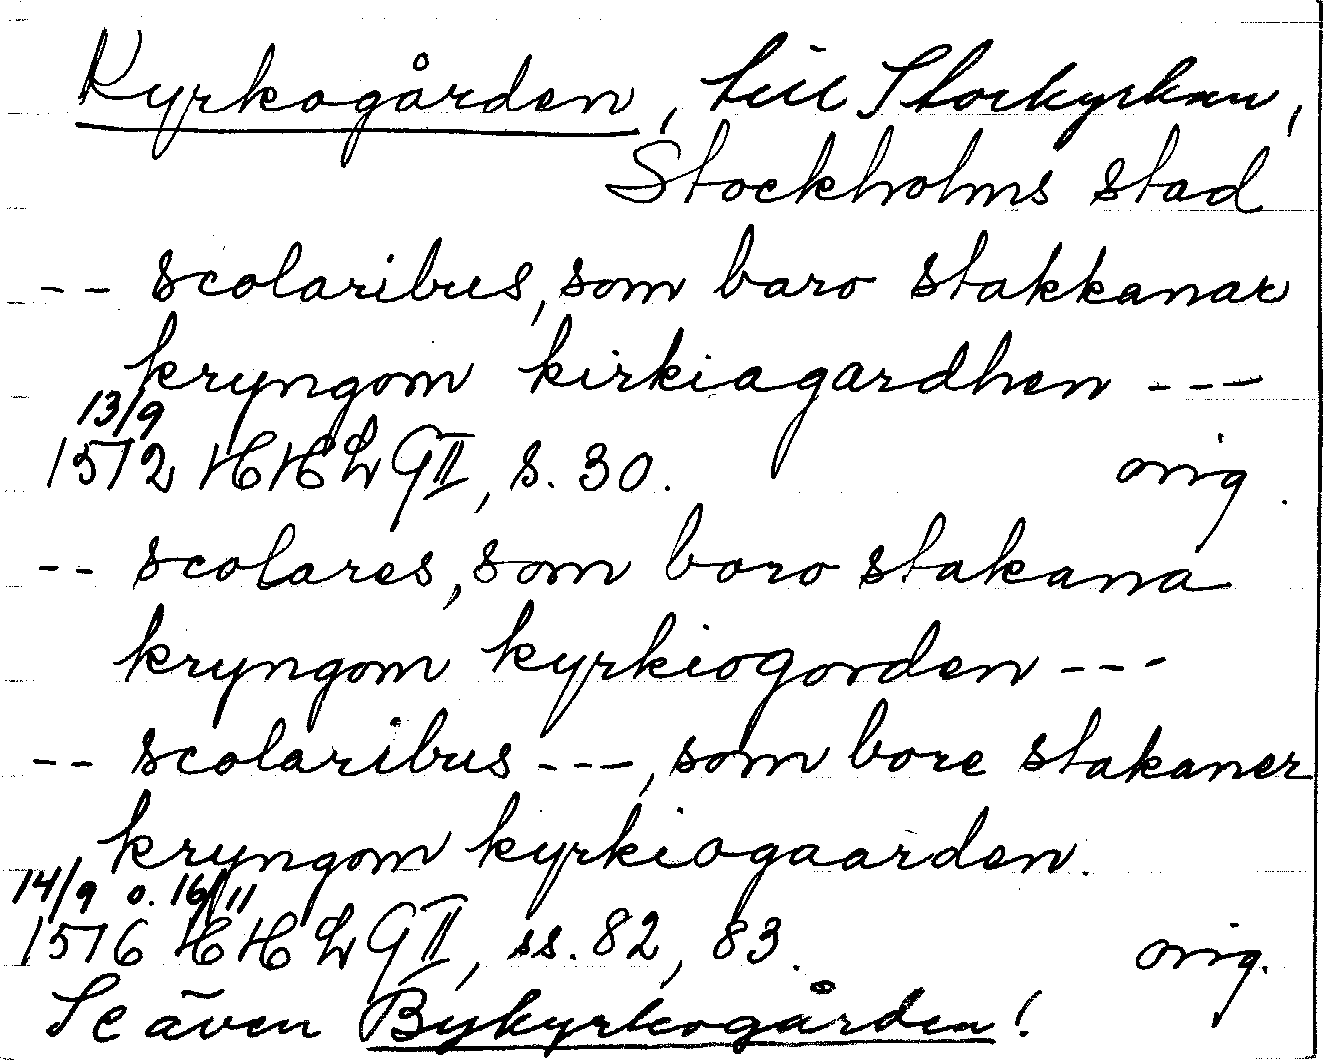 Kyrkogården, till Storkyrkan,
Stockholms stad
-- scolaribus, som baro stakkanar
kryngom kirkiagardhen ---
13/9
1572 HHL GII, s. 30. orig.
-- scolares, som boro stakana
kryngom kyrkiogorden ---
-- scolaribus ---, som bore stakaner
kryngom kyrkiogaarden.
14/9 o. 16/11
1576 HHL GII, ss. 82, 83. orig.
Se även Bykyrkogården!